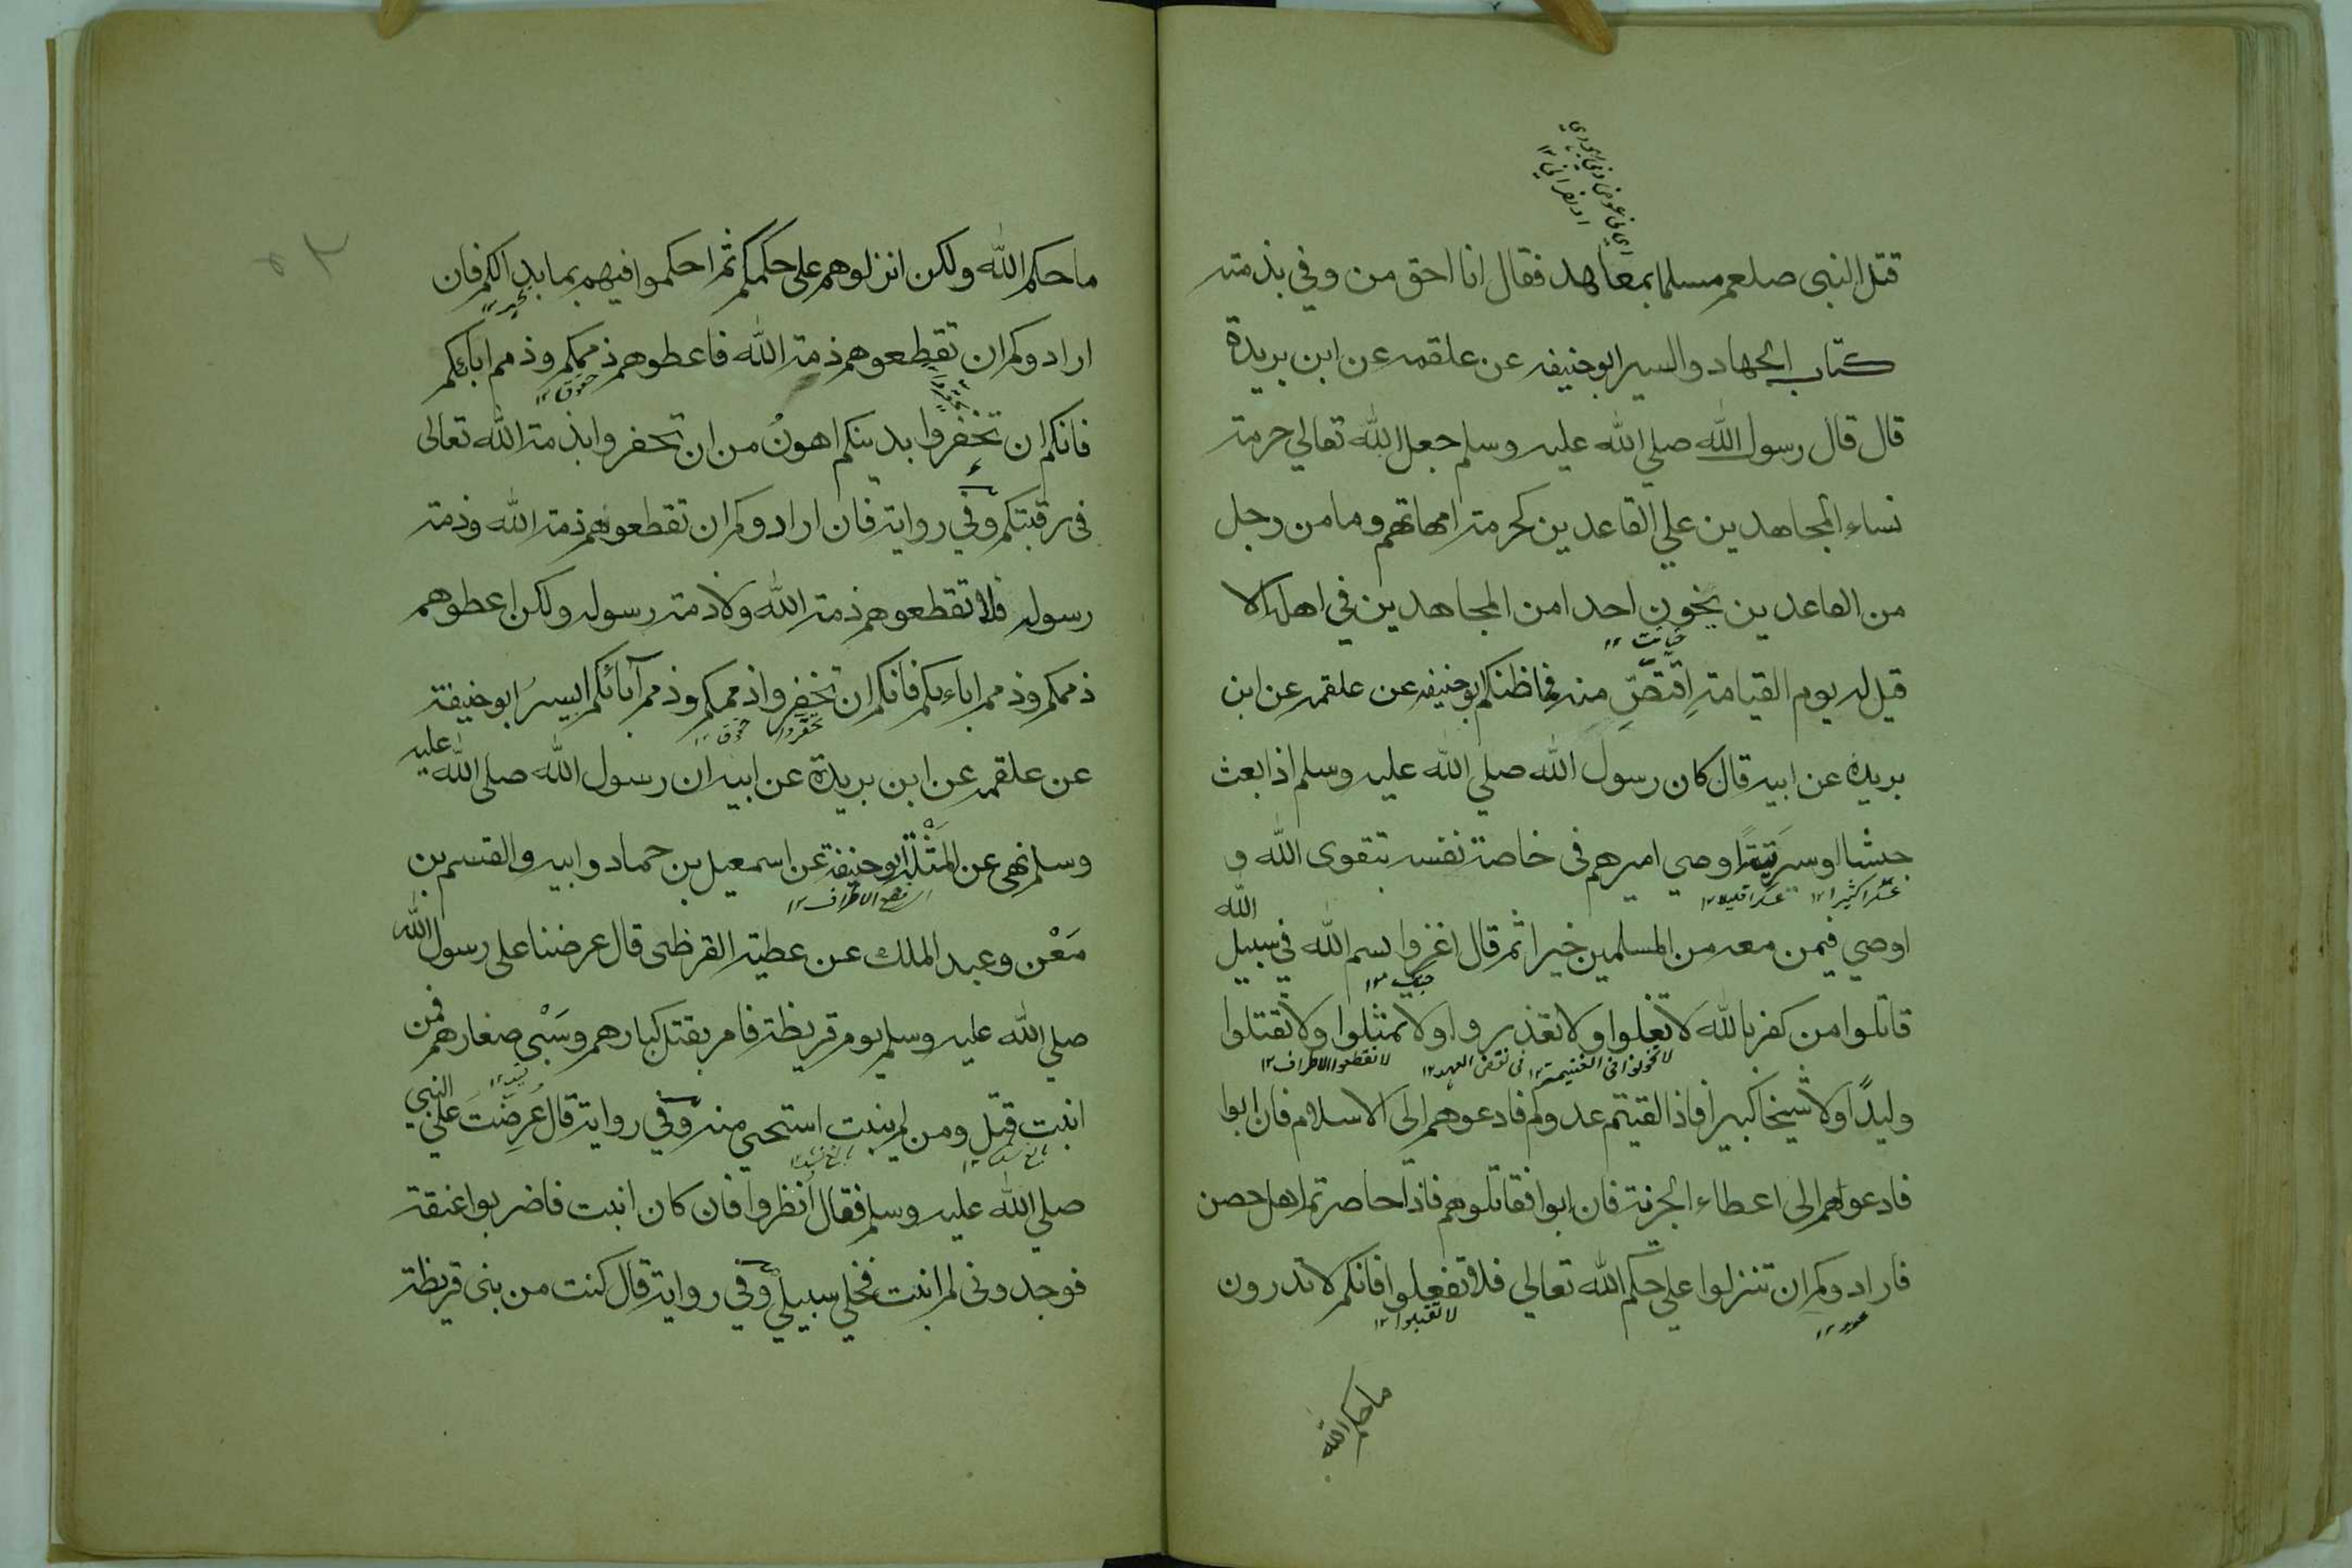 اي في عوض ذمي يهودي
او نصراني ١٢
قتل النبي صلعم مسلما بمعاهد فقال انا احق من وفي بذمته
كتاب الجهاد والسير ابو حنيفه عن علقمه عن ابن بريدة
قال قال رسول الله صلي الله عليه وسلم جعل الله تعالي حرمة
نساء المجاهدين علي القاعدين كحرمة امهاتهم وما من رجل
من القاعدين يخون احدا من المجاهدين في اهله الا
خيانت ١٢
قيل له يوم القيامة اِقتصِّ منه فما ظنكم ابو حنيفه عن علقمه عن ابن
بريدة عن ابيه قال كان رسول الله صلي الله عليه وسلم اذا بعث
جيشا او سريّةً اوصي اميرهم في خاصة نفسه بتقوى الله و
عسكرا كثيرا ١٢ عسكرا قليلا ١٢
اوصي فيمن معه من المسلمين خيرا ثم قال اغزوا بسم الله في سبيل الله
جنگ ١٢
قاتلوا من كفر بالله لا تغلوا ولا تغدروا ولا تمثلوا ولا تقتلوا
لا تخونوا في الغنيمة ١٢ في نقض العهد ١٢ لا تقطعوا الاطراف ١٢
وليدًا ولا شيخا كبيرا فاذا لقيتم عدوكم فادعوهم الى الاسلام فان ابوا
فادعوهم الى اعطاء الجزية فان ابوا فقاتلوهم فاذا حاصرتم اهل حصن
فارادوكم ان تنزلوا علي حكم الله تعالي فلا تفعلوا فانكم لا تدرون
لا تقبلوا ١٢
ما حكم الله
ما حكم الله ولكن انزلوهم على حكمكم ثم احكموا فيهم بما بدا لكم فان
ارادوكم ان تقطعوهم ذمة الله فاعطوهم ذممكم وذمم ابائكم
حقوق ١٢
فانكم ان تخفروا بدينكم اهونُ من ان تخفروا بذمة الله تعالى
في رقبتكم وفي رواية فان ارادوكم ان تقطعوهم ذمة الله وذمة
رسوله فلا تقطعوهم ذمة الله ولا ذمة رسوله ولكن اعطوهم
ذممكم وذمم اباءكم فانكم ان تخفروا ذممكم وذمم آبائكم ايسرُ ابو حنيفة
تحقروا حقوق ١٢
عن علقمه عن ابن بريدة عن ابيه ان رسول الله صلى الله عليه
وسلم نهى عن المثْلَة ابو حنيفة عن اسمعيل بن حماد وابيه والقسم بن
قطع الاطراف ١٢
مَعْن وعبد الملك عن عطية القرظى قال عرضنا على رسول الله
صلي الله عليه وسلم يوم قريظة فامر بقتل كبارهم وسَبْي صغارهم فمن
انبت قتل ومن لم ينبت استحيي منه وفي رواية قال عُرِضتُ علي النبي
صلي الله عليه وسلم فقال اُنظروا فان كان انبت فاضربوا عنقة
فوجدوني لم انبت فخلي سبيلي وفي رواية قال كنت من بني قريظة